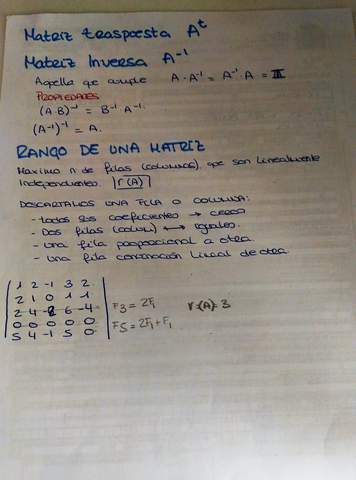 Matriz traspuesta Aᵗ
Matriz Inversa A⁻¹
Aquella que cumple A · A⁻¹ = A⁻¹ · A = II
PROPIEDADES
(A·B)⁻¹ = B⁻¹ · A⁻¹.
(A⁻¹)⁻¹ = A.
RANGO DE UNA MATRIZ
Maximo n de filas (columnas) que son linealmente
independientes. r(A)
DESCARTAMOS UNA FILA O COLUMNA:
- todos sus coeficientes → ceros
- Dos filas (colum) ↔ iguales.
- una fila proporcional a otra.
- una fila combinación lineal de otra.
1 2 -1 3 2
2 1 0 1 1
2 4 -2 6 -4 F3 = 2F1 r(A) = 3
0 0 0 0 0
5 4 -1 5 0 F5 = 2F1 + F1